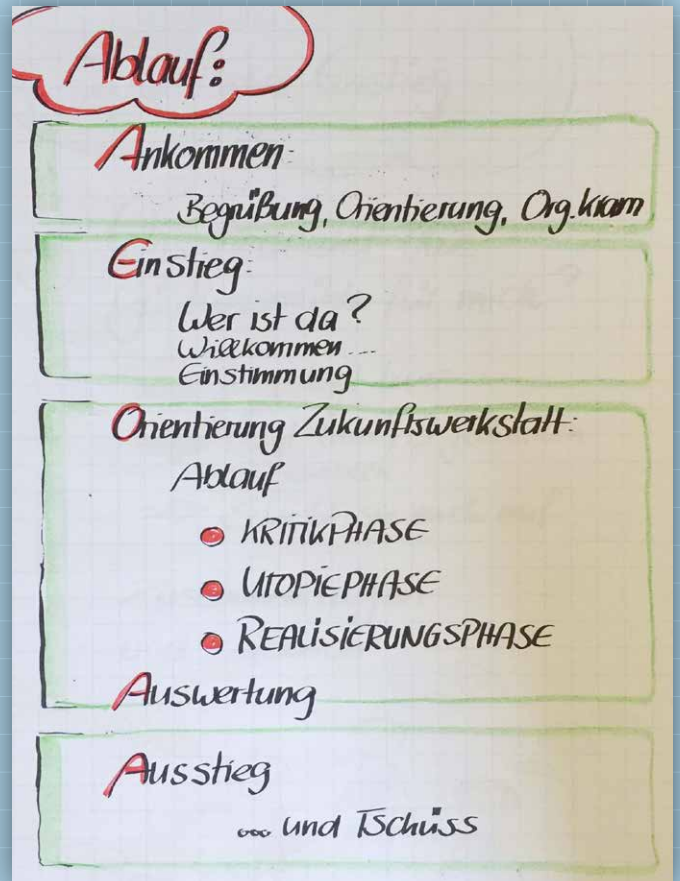 Ablauf:
Ankommen:
Begrüßung, Orientierung, Org.kram
Einstieg:
Wer ist da?
Willkommen ...
Einstimmung
Orientierung Zukunftswerkstatt:
Ablauf
KRITIKPHASE
UTOPIEPHASE
REALISIERUNGSPHASE
Auswertung
Ausstieg
... und Tschüss